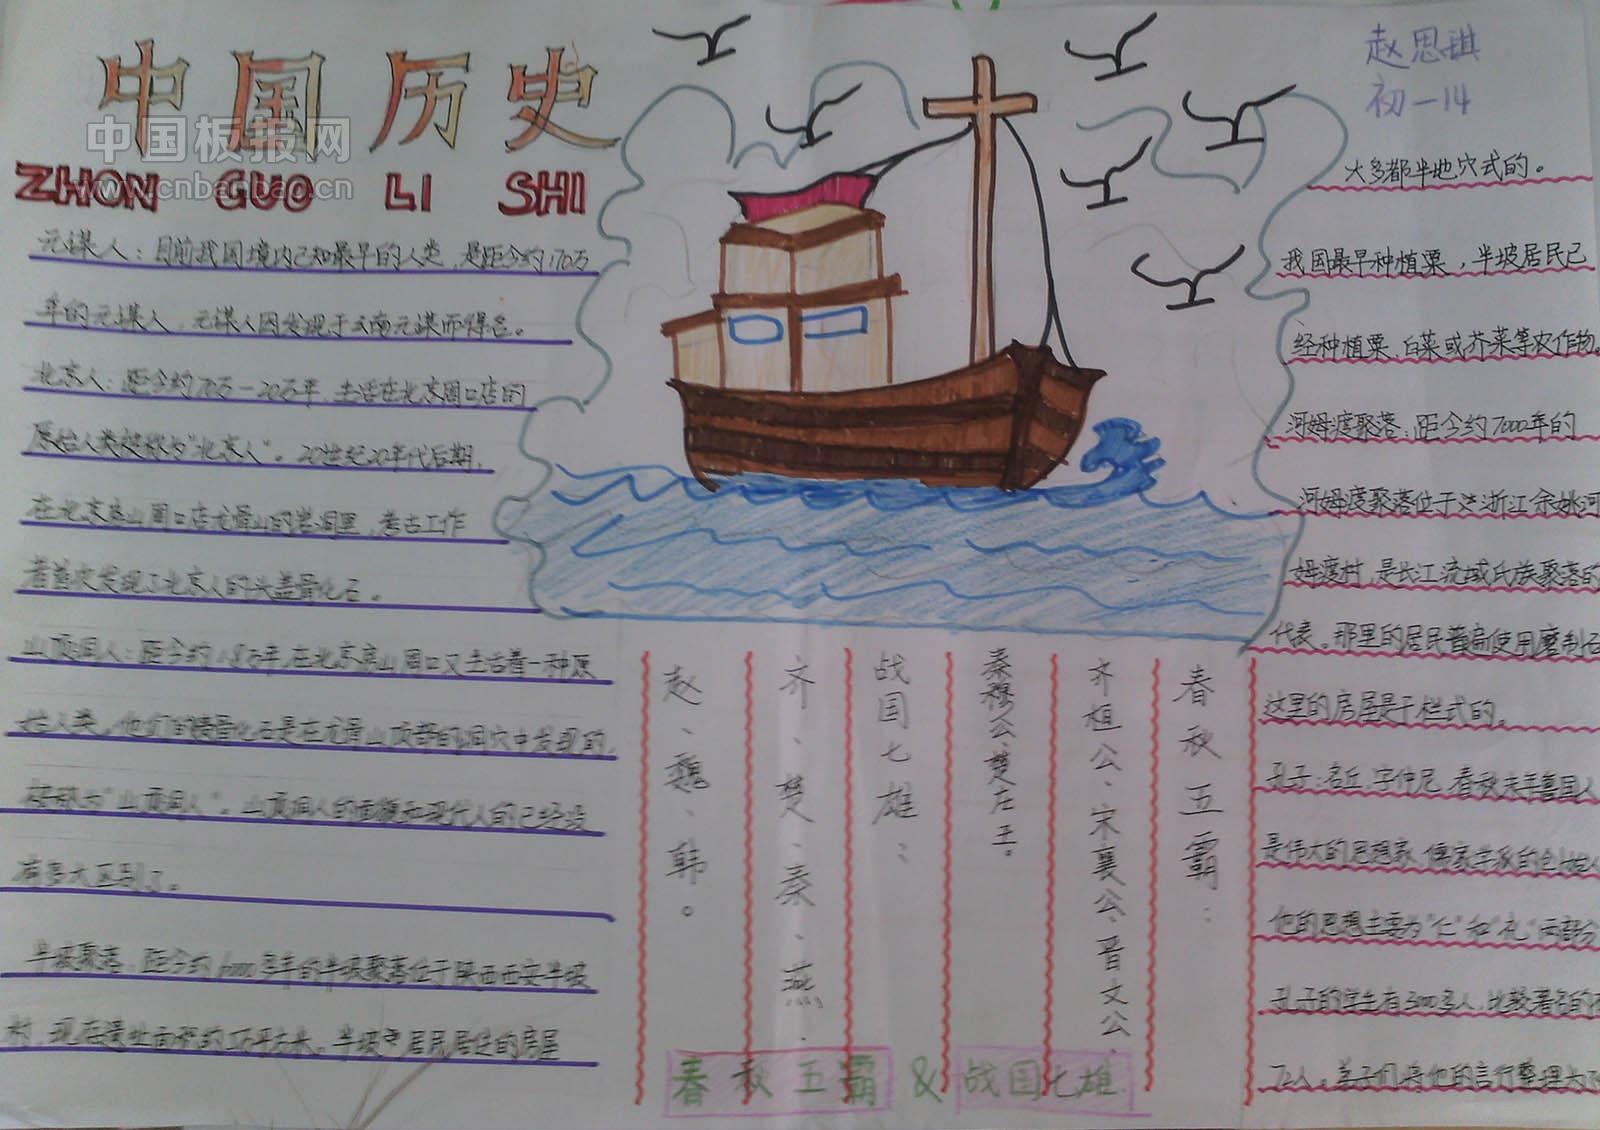 中国历史
中国板报网
www.cnbanbao.cn
ZHON GUO LI SHI
赵思琪
初一14
元谋人：目前我国境内已知最早的人类，是距今约170万
年的元谋人，元谋人因发现于云南元谋而得名。
北京人：距今约70万—20万年，生活在北京周口店的
原始人类被称为"北京人"。20世纪20年代后期，
在北京房山周口店龙骨山的岩洞里，考古工作
者首次发现了北京人的头盖骨化石。
山顶洞人：距今约1.8万年，在北京房山周口又生活着一种原
始人类。他们的骨化石是在龙骨山顶部的洞穴中发现的，
被称为"山顶洞人"。山顶洞人的面貌和现代人的已经没
有多大区别了。
半坡聚落，距今约6000多年的半坡聚落位于陕西西安半坡
村，现存遗址面积约5万平方米。半坡居民居住的房屋
大多都半地穴式的。
我国最早种植粟，半坡居民已
经种植粟、白菜或芥菜等农作物。
河姆渡聚落：距今约7000年的
河姆渡聚落位于浙江余姚河
姆渡村，是长江流域氏族聚落的
代表。那里的居民普遍使用磨制石
这里的房屋是干栏式的。
孔子：名丘，字仲尼，春秋末年鲁国人
是伟大的思想家，儒家学派的创始人
他的思想主要为"仁"和"礼"两部分
孔子的学生有3000多人，比较著名的有
72人。弟子们将他的言行整理为
春秋五霸：
齐桓公、宋襄公、晋文公、
秦穆公、楚庄王。
战国七雄：
齐、楚、秦、燕、
赵、魏、韩。
春秋五霸&战国七雄